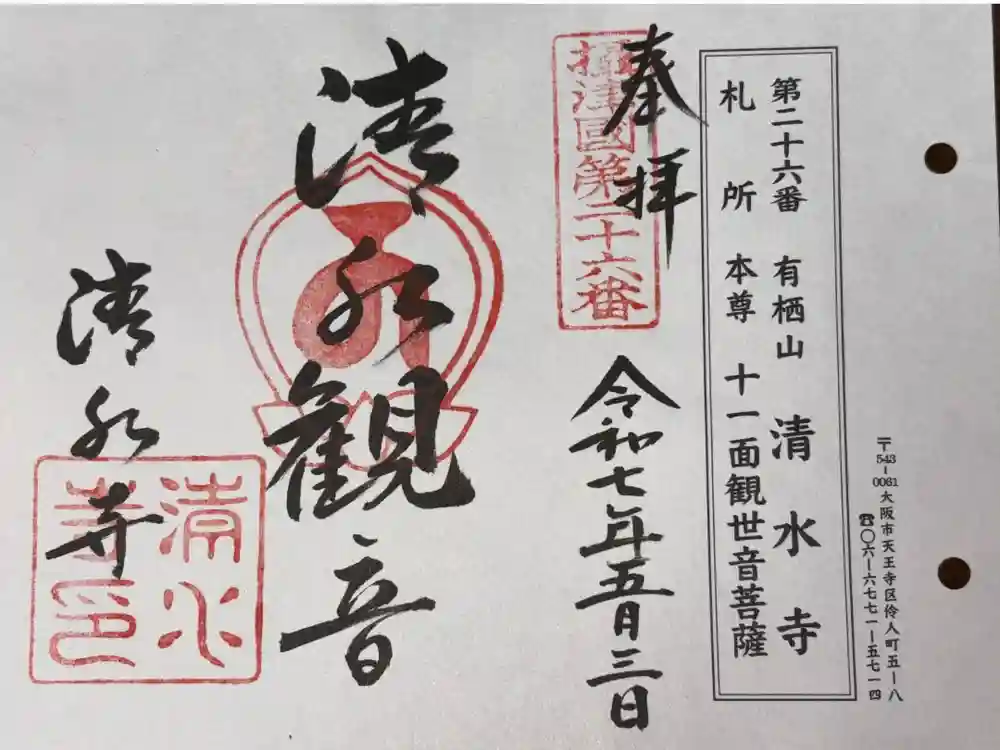 〒543-0061大阪市天王寺区伶人町五ー八
☎〇六ー六七七一ー五七一四
第二十六番 有栖山 清水寺
札所 本尊 十一面観世音菩薩
奉拝
摂津國第二十六番
令和七年五月三日
清水観音
清水寺
清水
寺印